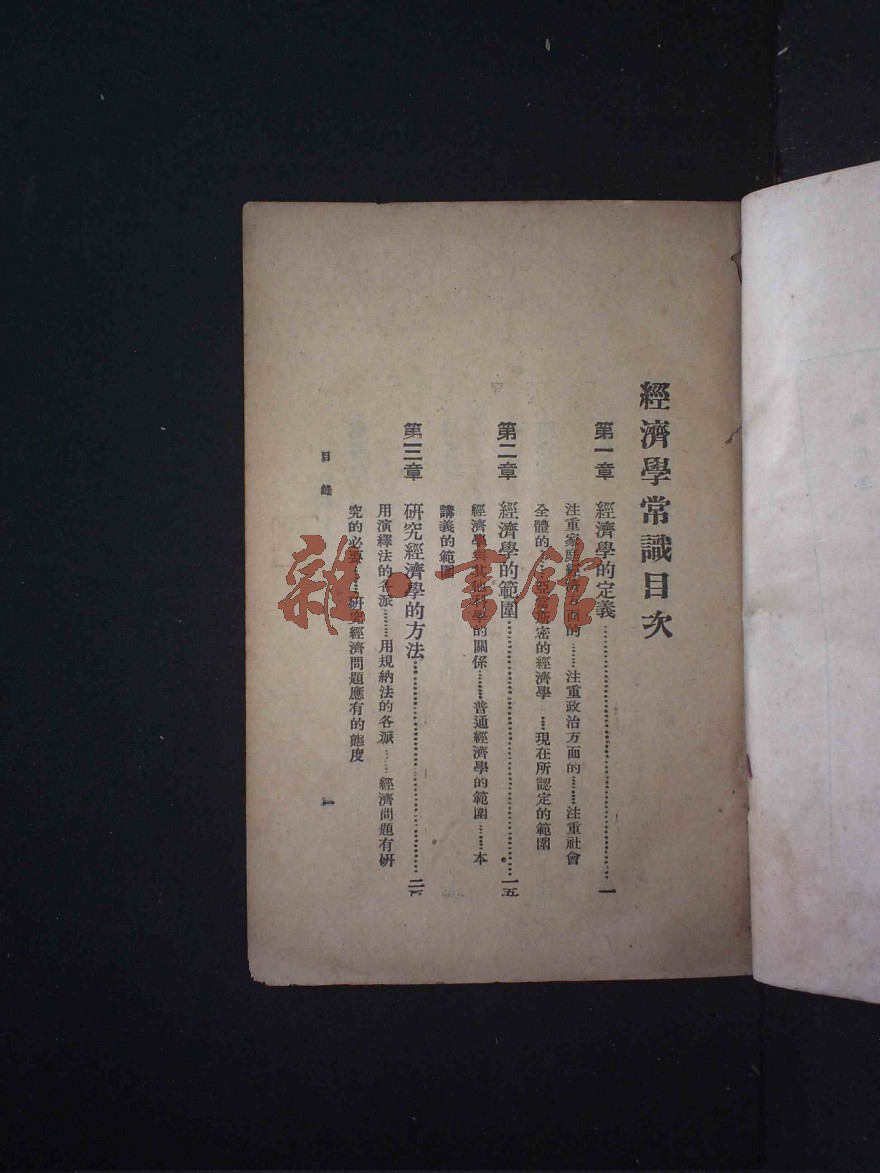 經濟學常識目次
第一章 經濟學的定義……一
注重家庭經濟方面的……注重政治方面的……注重社會
全體的……亞當斯密的經濟學……現在所認定的範圍
第二章 經濟學的範圍……一五
經濟學與其他科學的關係……普通經濟學的範圍……本
講義的範圍
第三章 研究經濟學的方法……二五
用演釋法的各派……用規納法的各派……經濟問題有研
究的必要……研究經濟問題應有的態度
目錄
一
雜·書館